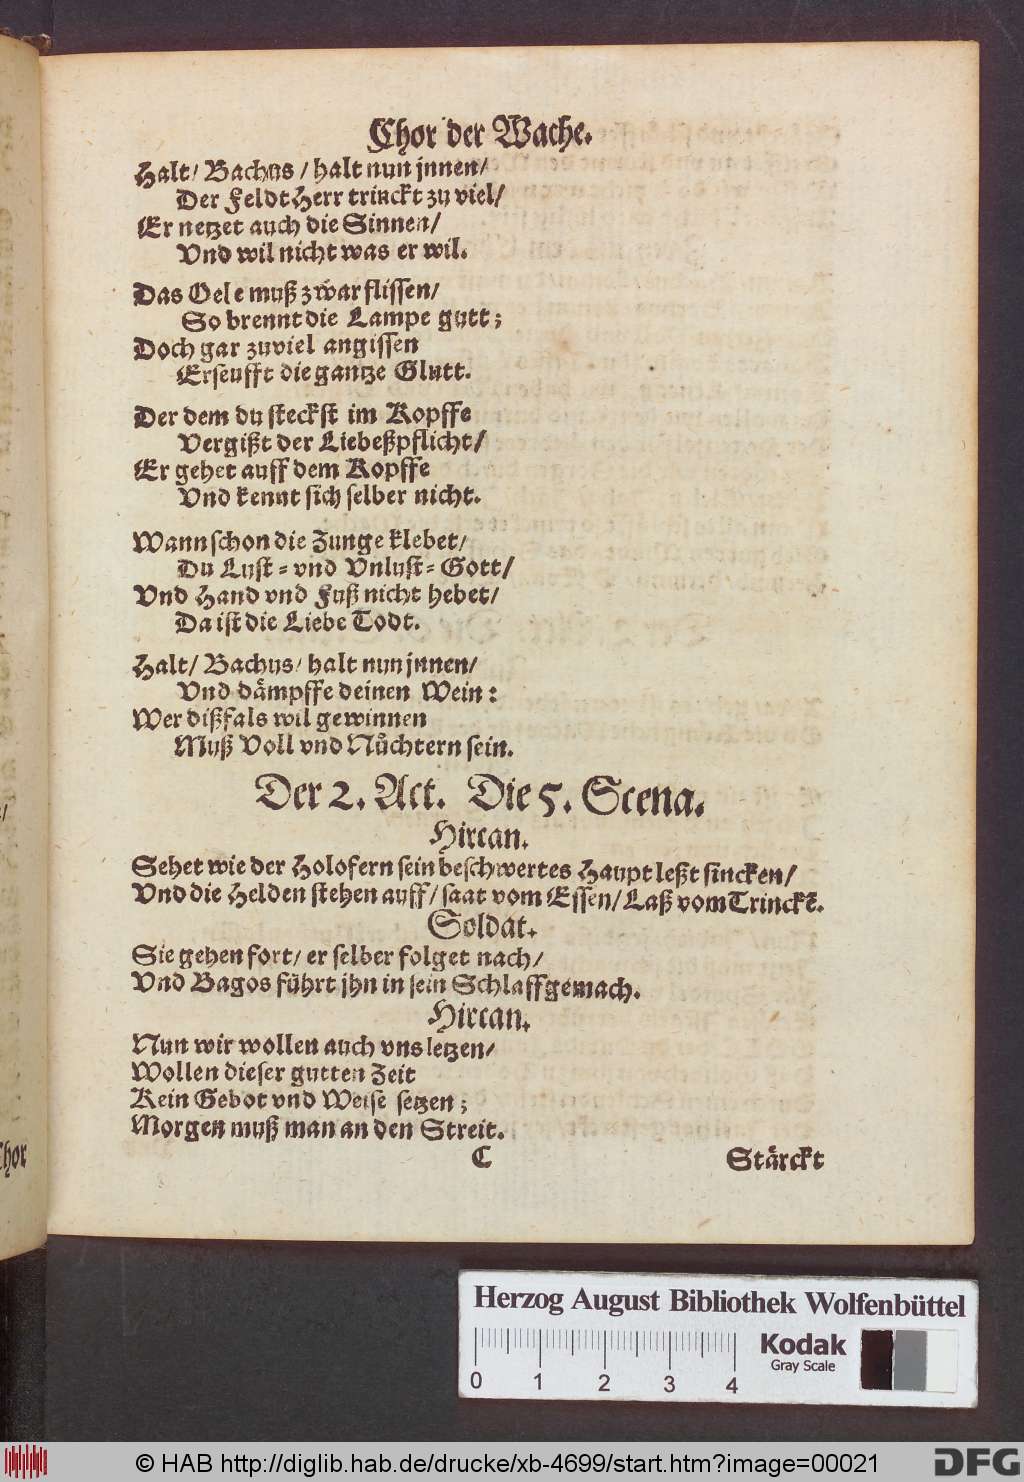 Chor der Wache.
Halt/ Bachus / halt nun jnnen/
Der FeldtHerr trinckt zu viel/
Er netzet auch die Sinnen/
Vnd wil nicht was er wil.
Das Oele muß zwar flissen/
So brennt die Lampe gutt;
Doch gar zuviel angissen
Erseufft die gantze Glutt.
Der dem du steckst im Kopffe
Vergißt der Liebeßpflicht/
Er gehet auff dem Kopffe
Vnd kennt sich selber nicht.
Wann schon die Zunge klebet/
Du Lust- vnd Vnlust- Gott/
Vnd Hand vnd Fuß nicht hebet/
Da ist die Liebe Todt.
Halt/ Bachus/ halt nun jnnen/
Vnd dämpffe deinen Wein:
Wer dißfals wil gewinnen
Muß Voll vnd Nüchtern sein.
Der 2. Act. Die 5. Scena.
Hircan.
Sehet wie der Holofern sein beschwertes Haupt leßt sincken/
Vnd die Helden stehen auff/ saat vom Essen/ Laß vom Trinckē.
Soldat.
Sie gehen fort/ er selber folget nach/
Vnd Bagos führt jhn in sein Schlaffgemach.
Hircan.
Nun wir wollen auch vns letzen/
Wollen dieser gutten Zeit
Kein Gebot vnd Weise setzen;
Morgen muß man an den Streit.
C Stärckt
Chor
Herzog August Bibliothek Wolfenbüttel
Kodak
Gray Scale
0 1 2 3 4
© HAB http://diglib.hab.de/drucke/xb-4699/start.htm?image=00021
DFG